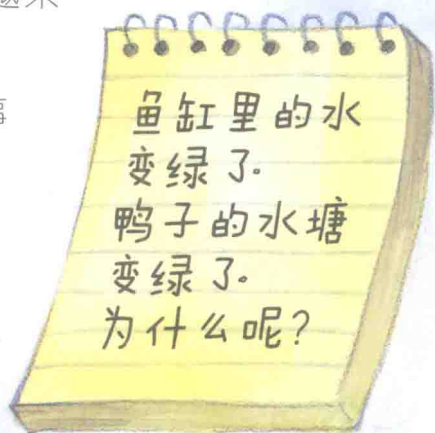 鱼缸里的水
变绿了。
鸭子的水塘
变绿了。
为什么呢？